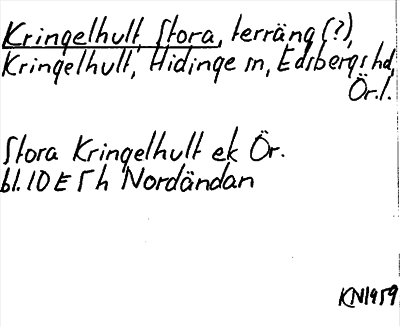 Kringelhult, Stora, terräng (?),
Kringelhult, Hidinge sn, Edsbergs hd,
Ör. l.
Stora Kringelhult ek Ör.
bl. 10 E 5 h Nordändan
KN1959